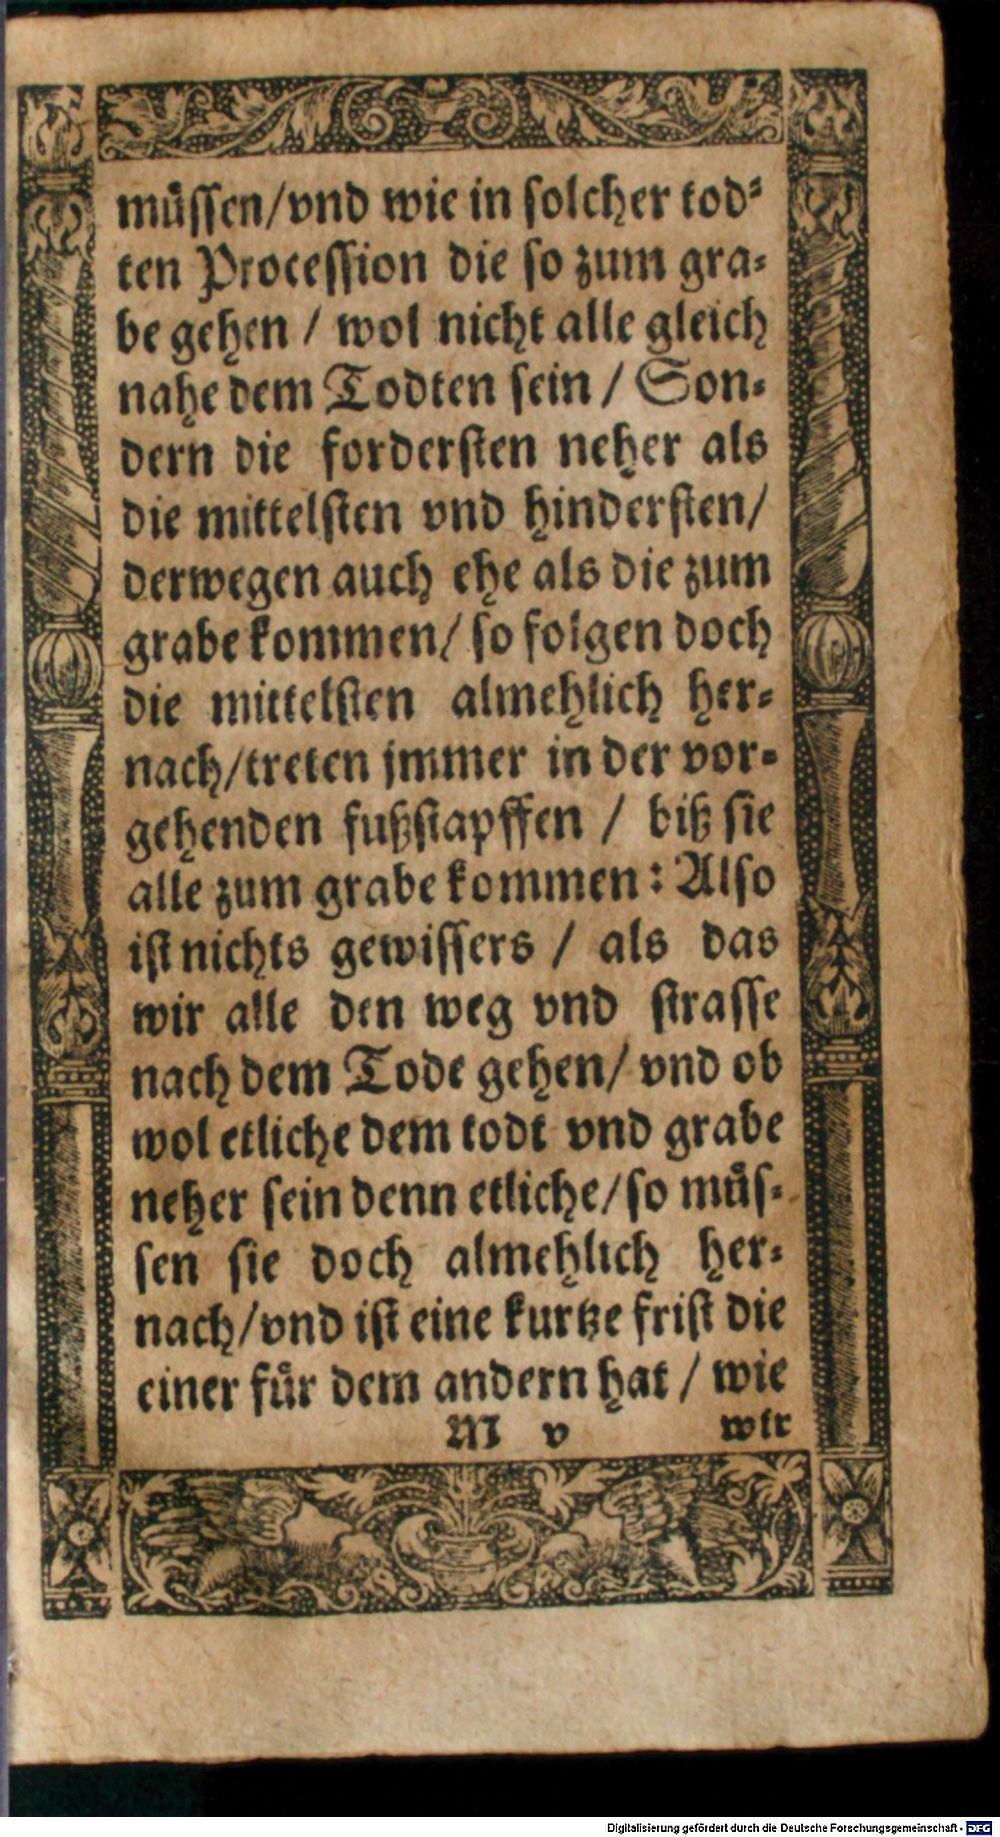 müssen/vnd wie in solcher tod⸗
ten Procession die so zum gra⸗
be gehen / wol nicht alle gleich
nahe dem Todten sein / Son⸗
dern die fordersten neher als
die mittelsten vnd hindersten/
derwegen auch ehe als die zum
grabe kommen/ so folgen doch
die mittelsten almehlich her⸗
nach/treten jmmer in der vor⸗
gehenden fußstapffen / biß sie
alle zum grabe kommen: Also
ist nichts gewissers / als das
wir alle den weg vnd strasse
nach dem Tode gehen/ vnd ob
wol etliche dem todt vnd grabe
neher sein denn etliche/so müs⸗
sen sie doch almehlich her⸗
nach/vnd ist eine kurtze frist die
einer für dem andern hat / wie
M v wir
Digitalisierung gefördert durch die Deutsche Forschungsgemeinschaft - DFG